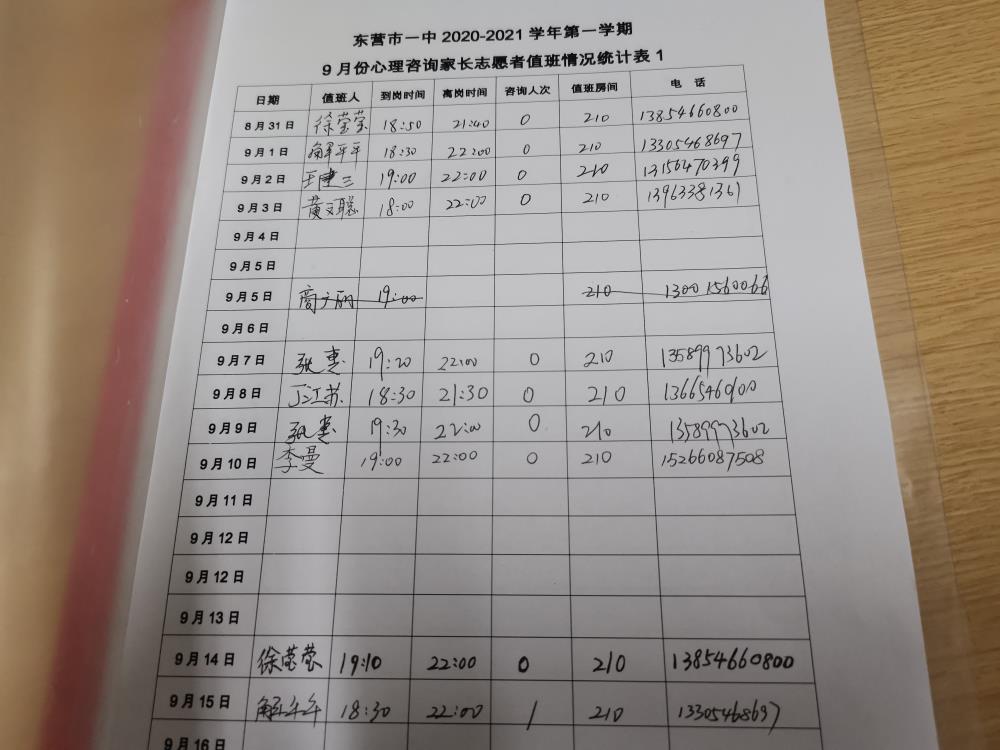 东营市一中 2020-2021 学年第一学期
9 月份心理咨询家长志愿者值班情况统计表 1
日期 值班人 到岗时间 离岗时间 咨询人次 值班房间 电 话
8 月 31 日 徐莹莹 18:50 21:40 0 210 13854660800
9 月 1 日 解平平 18:30 22:00 0 210 13305468697
9 月 2 日 王建三 19:00 22:00 0 210 13156470399
9 月 3 日 黄文聪 18:00 22:00 0 210 13963381361
9 月 4 日
9 月 5 日
9 月 5 日 19:00 210 13001560066
9 月 6 日
9 月 7 日 张惠 19:20 22:00 0 210 13589973602
9 月 8 日 丁江苏 18:30 21:30 0 210
9 月 9 日 张惠 19:30 22:00 0 210 13589973602
9 月 10 日 李曼 19:00 22:00 0 210 15266087508
9 月 11 日
9 月 12 日
9 月 12 日
9 月 13 日
9 月 14 日 徐莹莹 19:10 22:00 0 210 13854660800
9 月 15 日 解平平 18:30 22:00 1 210 13305468697
9 月 16 日